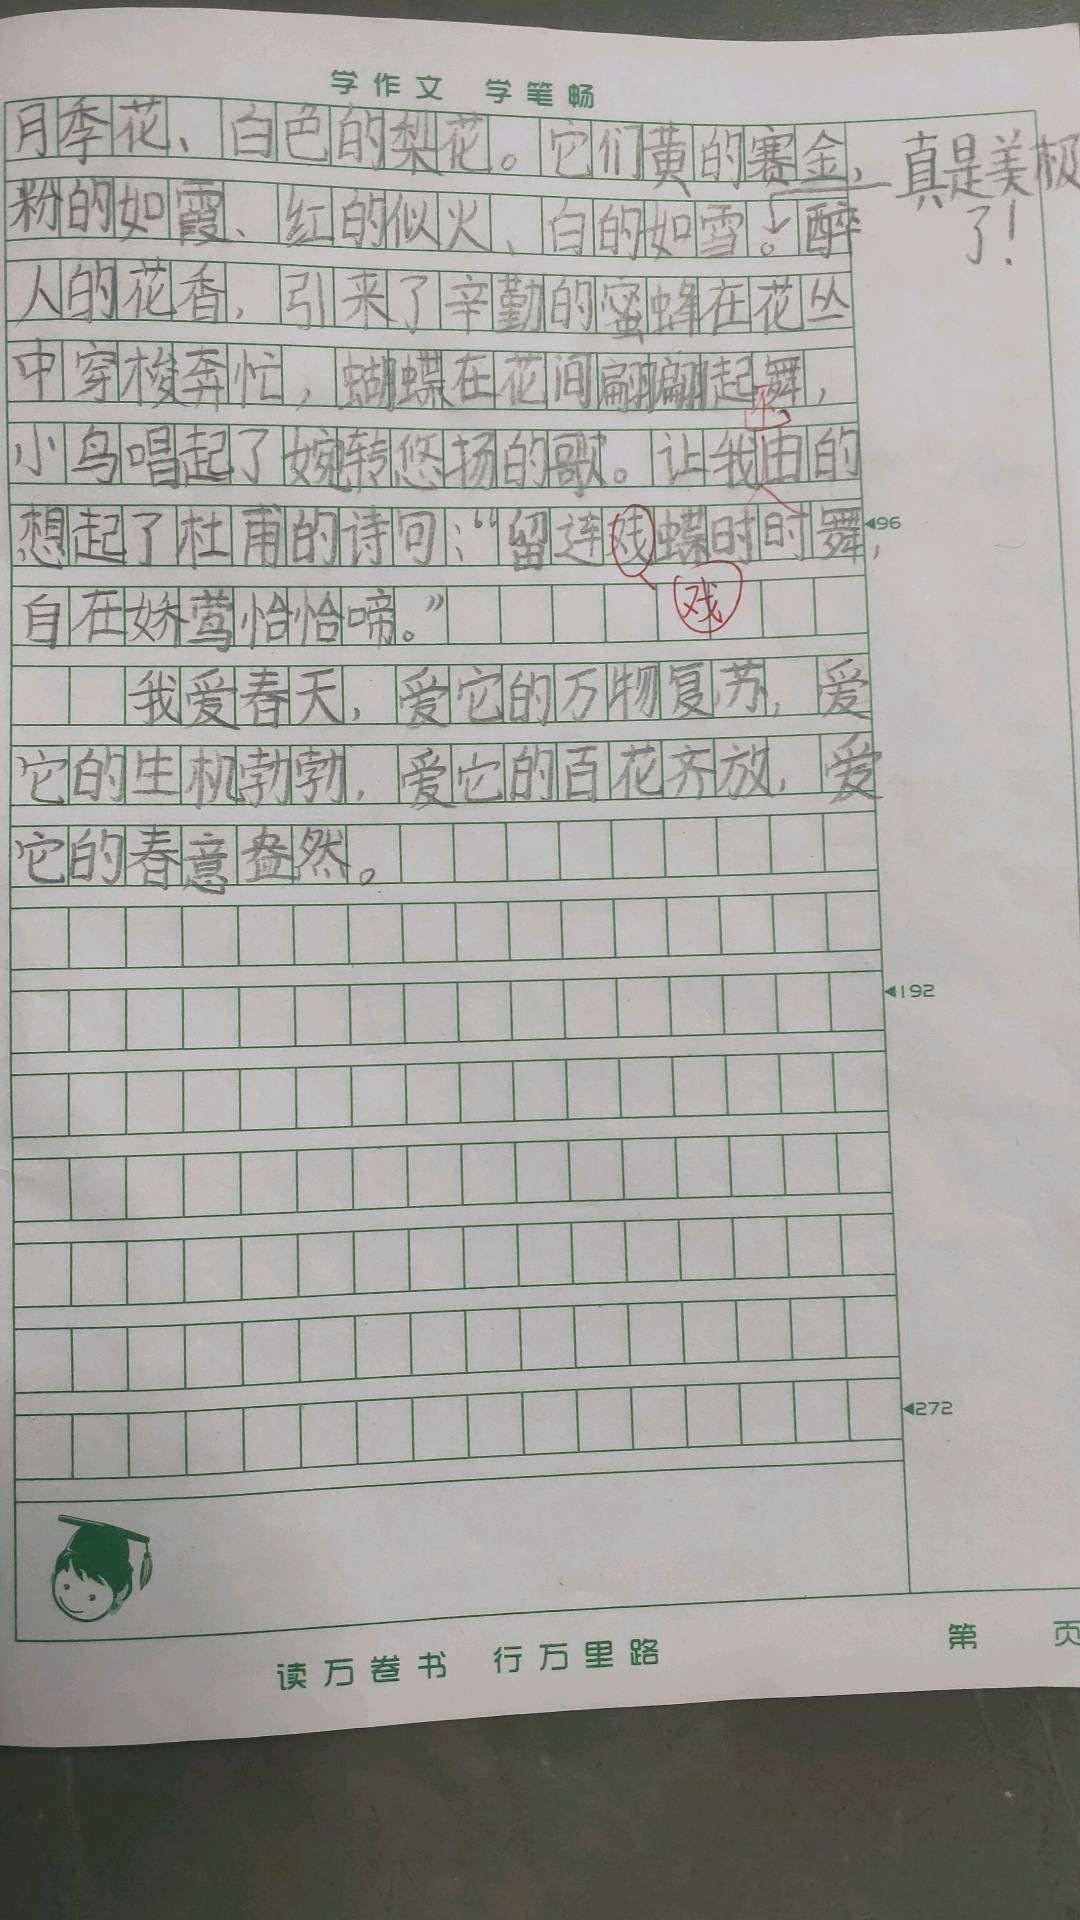 学作文 学笔畅
月季花、白色的梨花。它们黄的赛金、
真是美极了！
粉的如霞、红的似火、白的如雪。醉
人的花香，引来了辛勤的蜜蜂在花丛
中穿梭奔忙，蝴蝶在花间翩翩起舞，
小鸟唱起了婉转悠扬的歌。让我由的
不
想起了杜甫的诗句：“留连戏蝶时时舞，
◀96
戏
自在娇莺恰恰啼。”
我爱春天，爱它的万物复苏，爱
它的生机勃勃，爱它的百花齐放，爱
它的春意盎然。
◀192
◀272
读万卷书 行万里路
第 页